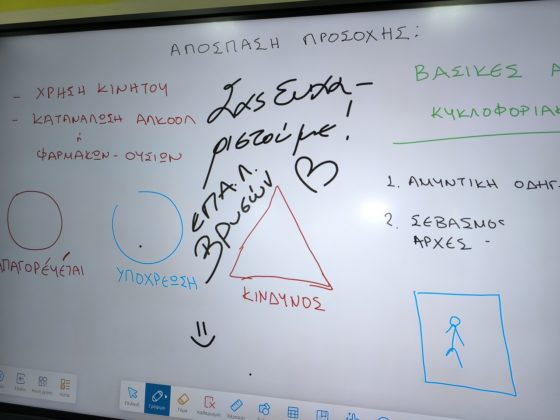 ΑΠΟΣΠΑΣΗ ΠΡΟΣΟΧΗΣ:
- ΧΡΗΣΗ ΚΙΝΗΤΟΥ
- ΚΑΤΑΝΑΛΩΣΗ ΑΛΚΟΟΛ
ή
ΦΑΡΜΑΚΩΝ - ΟΥΣΙΩΝ
Σας Ευχα-
ριστούμε!
ΕΠΑ.Λ.
Βρυσών
ΒΑΣΙΚΕΣ Α
ΚΥΚΛΟΦΟΡΙΑΚ
1. ΑΜΥΝΤΙΚΗ ΟΔΗΓ
2. ΣΕΒΑΣΜΟΣ
ΑΡΧΕΣ -
ΑΠΑΓΟΡΕΥΕΤΑΙ
ΥΠΟΧΡΕΩΣΗ
ΚΙΝΔΥΝΟΣ